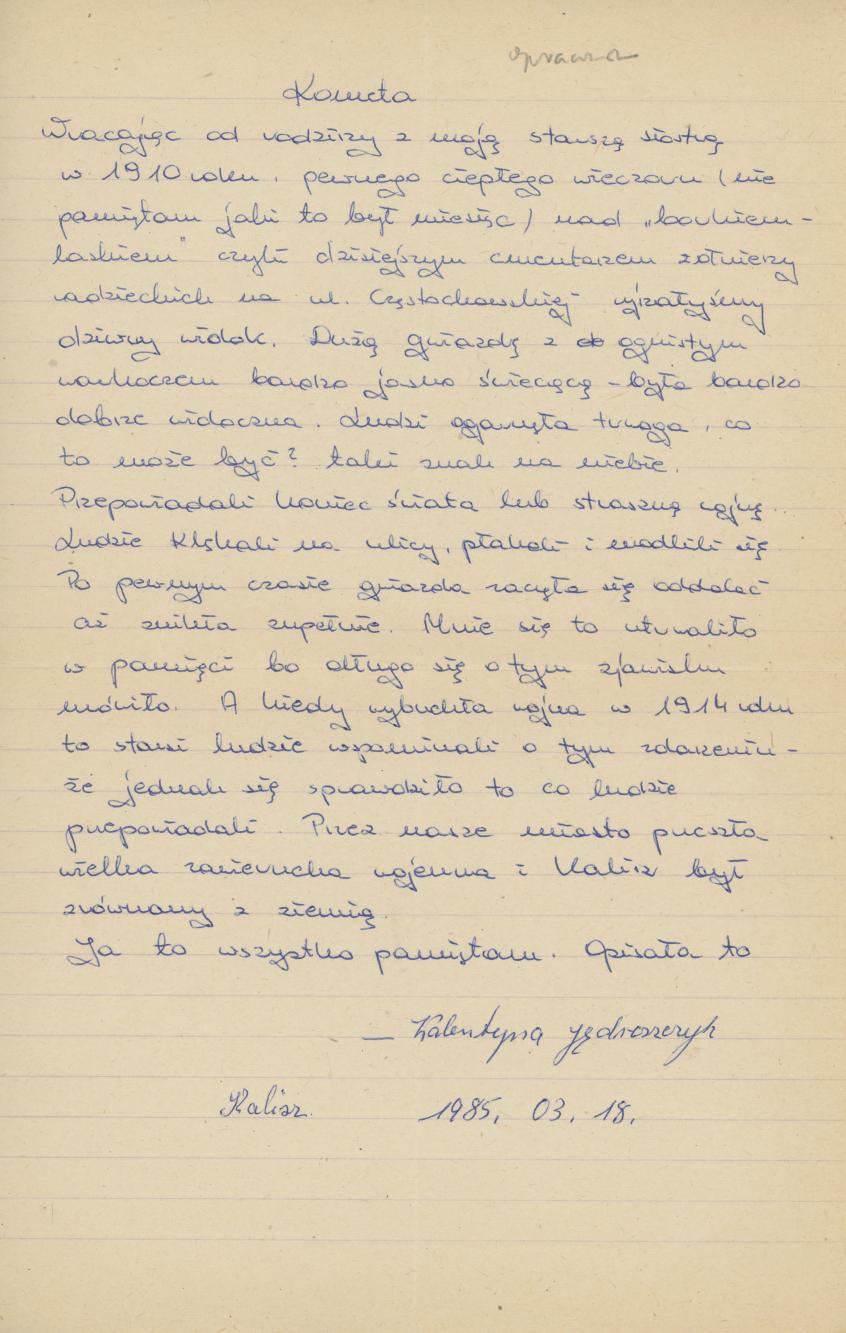 Kometa
Wracając od rodziny z moją starszą siostrą
w 1910 roku, pewnego ciepłego wieczoru (nie
pamiętam jaki to był miesiąc) nad „borkiem-
laskiem" czyli dzisiejszym cmentarzem żołnierzy
radzieckich na ul. Częstochowskiej ujrzałyśmy
dziwny widok. Dużą gwiazdę z ognistym
warkoczem bardzo jasno świecącą – była bardzo
dobrze widoczna. Ludzi ogarnęła trwoga, co
to może być? taki znak na niebie.
Przepowiadali koniec świata lub straszną wojnę.
Ludzie klękali na ulicy, płakali i modlili się
Po pewnym czasie gwiazda zaczęła się oddalać
aż znikła zupełnie. Mnie się to utrwaliło
w pamięci bo długo się o tym zjawisku
mówiło. A kiedy wybuchła wojna w 1914 roku
to starsi ludzie wspominali o tym zdarzeniu –
że jednak się sprawdziło to co ludzie
przepowiadali. Przez nasze miasto przeszła
wielka zawierucha wojenna i Kalisz był
zrównany z ziemią.
Ja to wszystko pamiętam. Opisała to
— Walentyna Jędraszczyk
Kalisz. 1985. 03. 18.